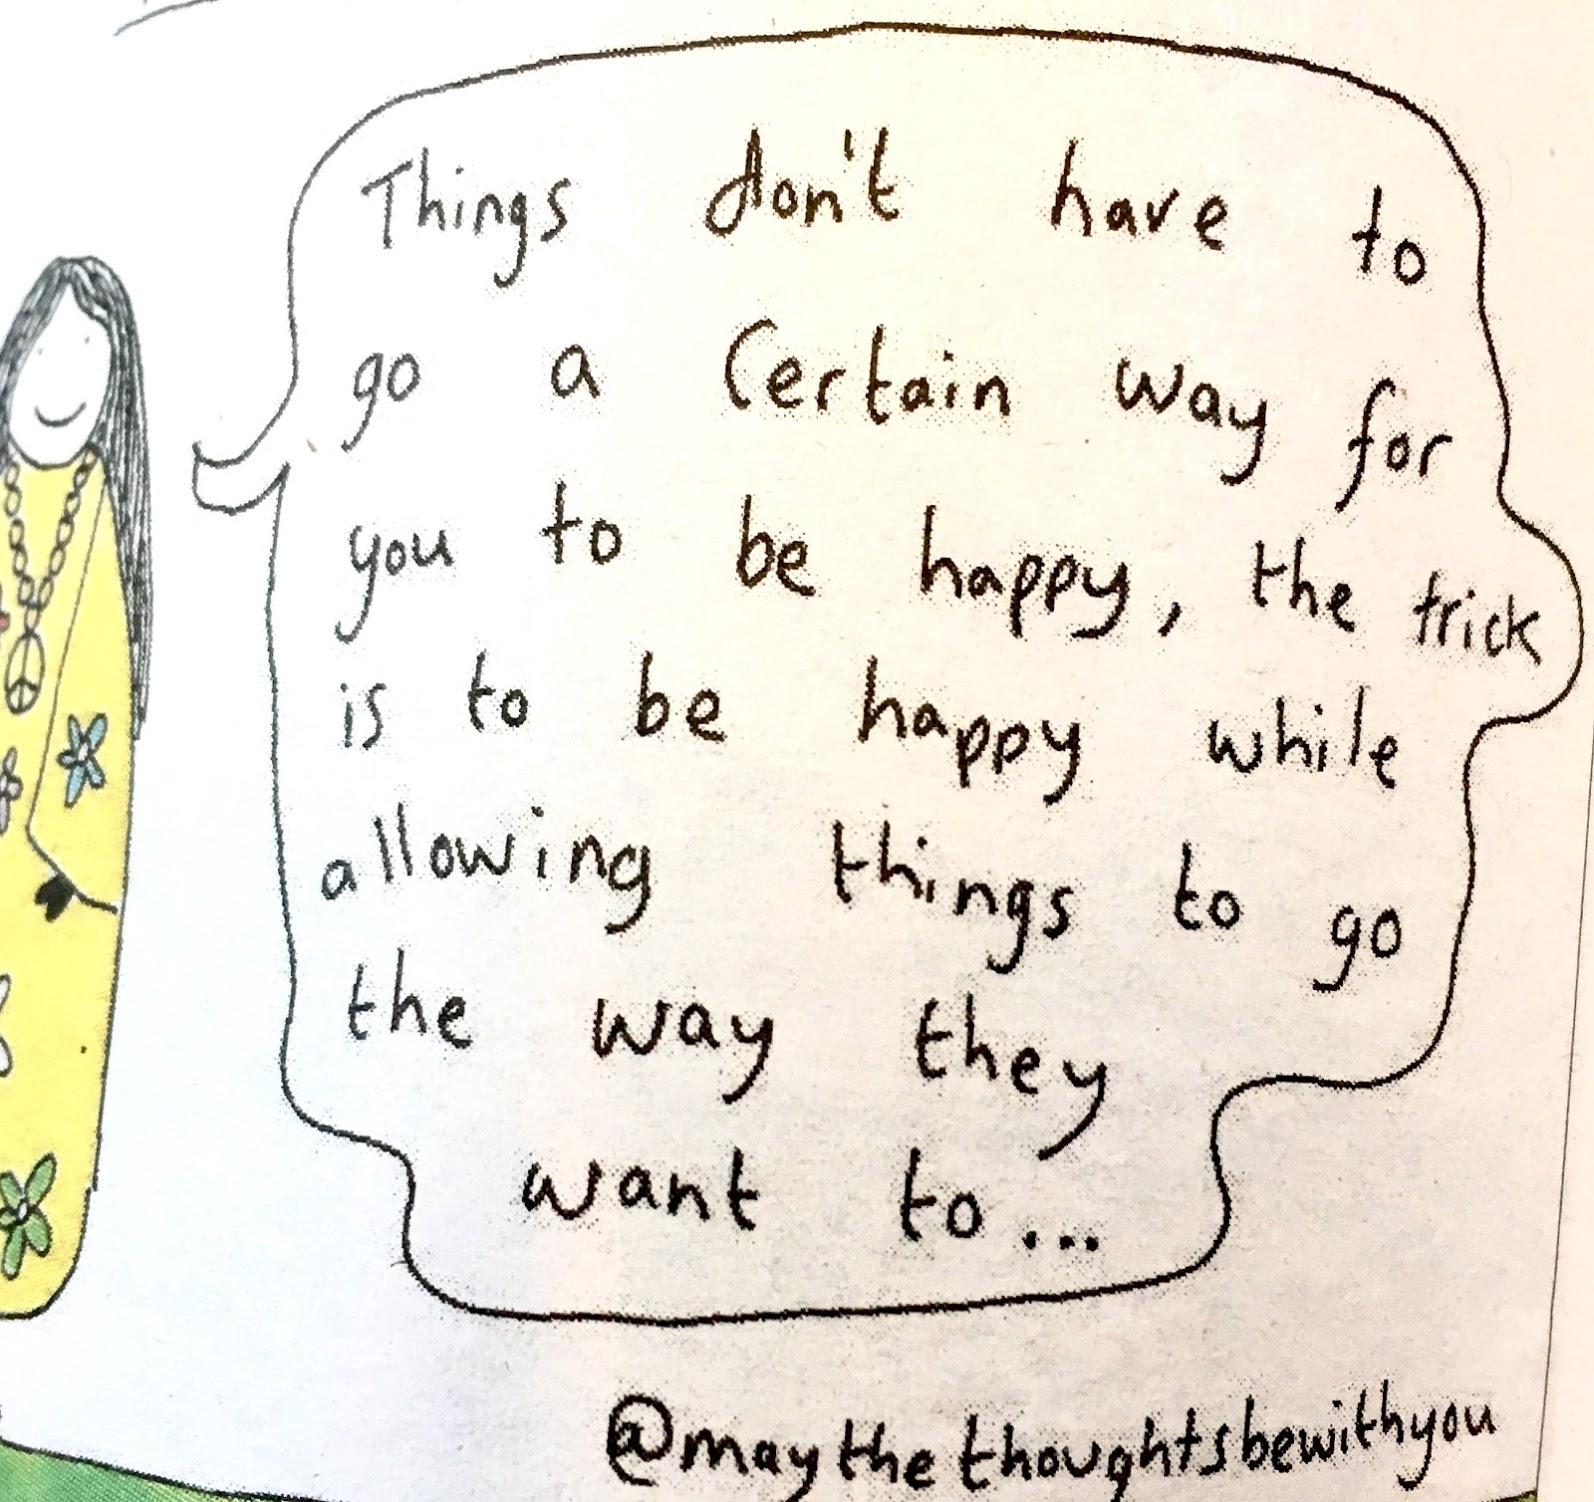 Things don't have to
go a Certain way for
you to be happy, the trick
is to be happy while
allowing things to go
the way they
want to...
@maythethoughtsbewithyou